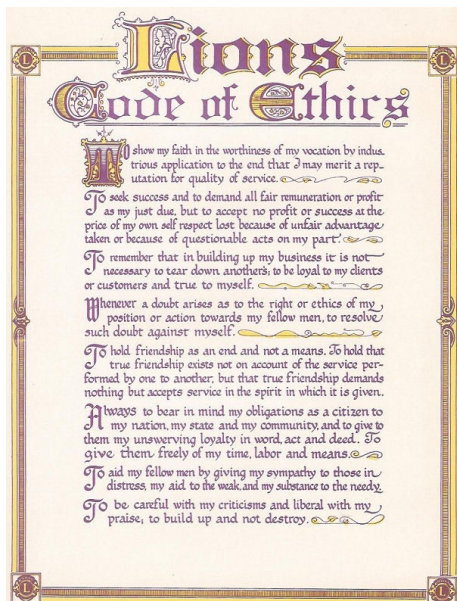 Lions
Code of Ethics
L
L
To show my faith in the worthiness of my vocation by indus_
trious application to the end that I may merit a rep_
utation for quality of service.
To seek success and to demand all fair remuneration or profit
as my just due, but to accept no profit or success at the
price of my own self respect lost because of unfair advantage
taken or because of questionable acts on my part.
To remember that in building up my business it is not
necessary to tear down another's; to be loyal to my clients
or customers and true to myself.
Whenever a doubt arises as to the right or ethics of my
position or action towards my fellow men, to resolve
such doubt against myself.
To hold friendship as an end and not a means. To hold that
true friendship exists not on account of the service per-
formed by one to another, but that true friendship demands
nothing but accepts service in the spirit in which it is given.
Always to bear in mind my obligations as a citizen to
my nation, my state and my community, and to give to
them my unswerving loyalty in word, act and deed. To
give them freely of my time, labor and means.
To aid my fellow men by giving my sympathy to those in
distress, my aid to the weak, and my substance to the needy.
To be careful with my criticisms and liberal with my
praise; to build up and not destroy.
L
L